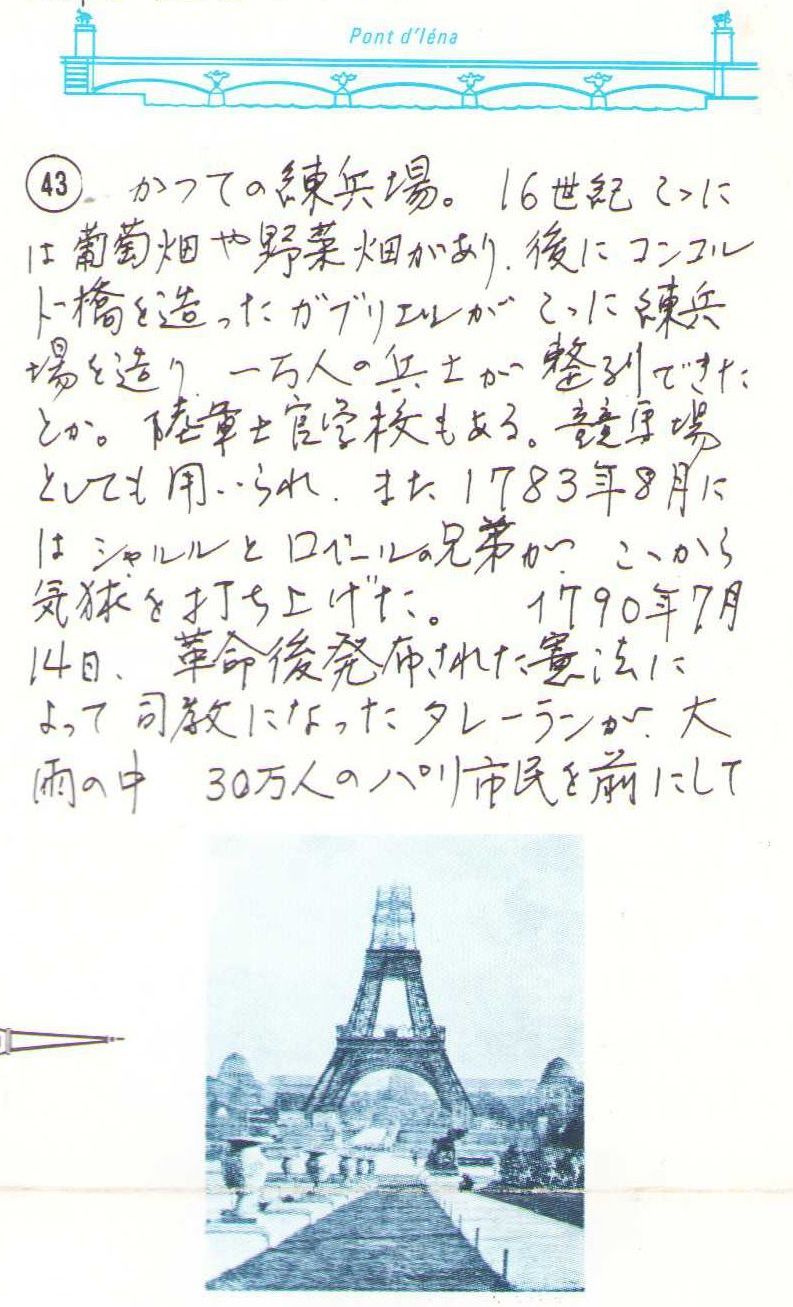 Pont d'Iéna
43 かつての練兵場。 16世紀ここに
は葡萄畑や野菜畑があり、後にコンコル
ド橋を造ったガブリエルがここに練兵
場を造り 一万人の兵士が整列できた
とか。陸軍士官学校もある。競馬場
としても用いられ、また1783年8月に
はシャルルとロベールの兄弟が、ここから
気球を打ち上げた。 1790年7月
14日、革命後発布された憲法に
よって司教になったタレーランが、大
雨の中 30万人のパリ市民を前にして